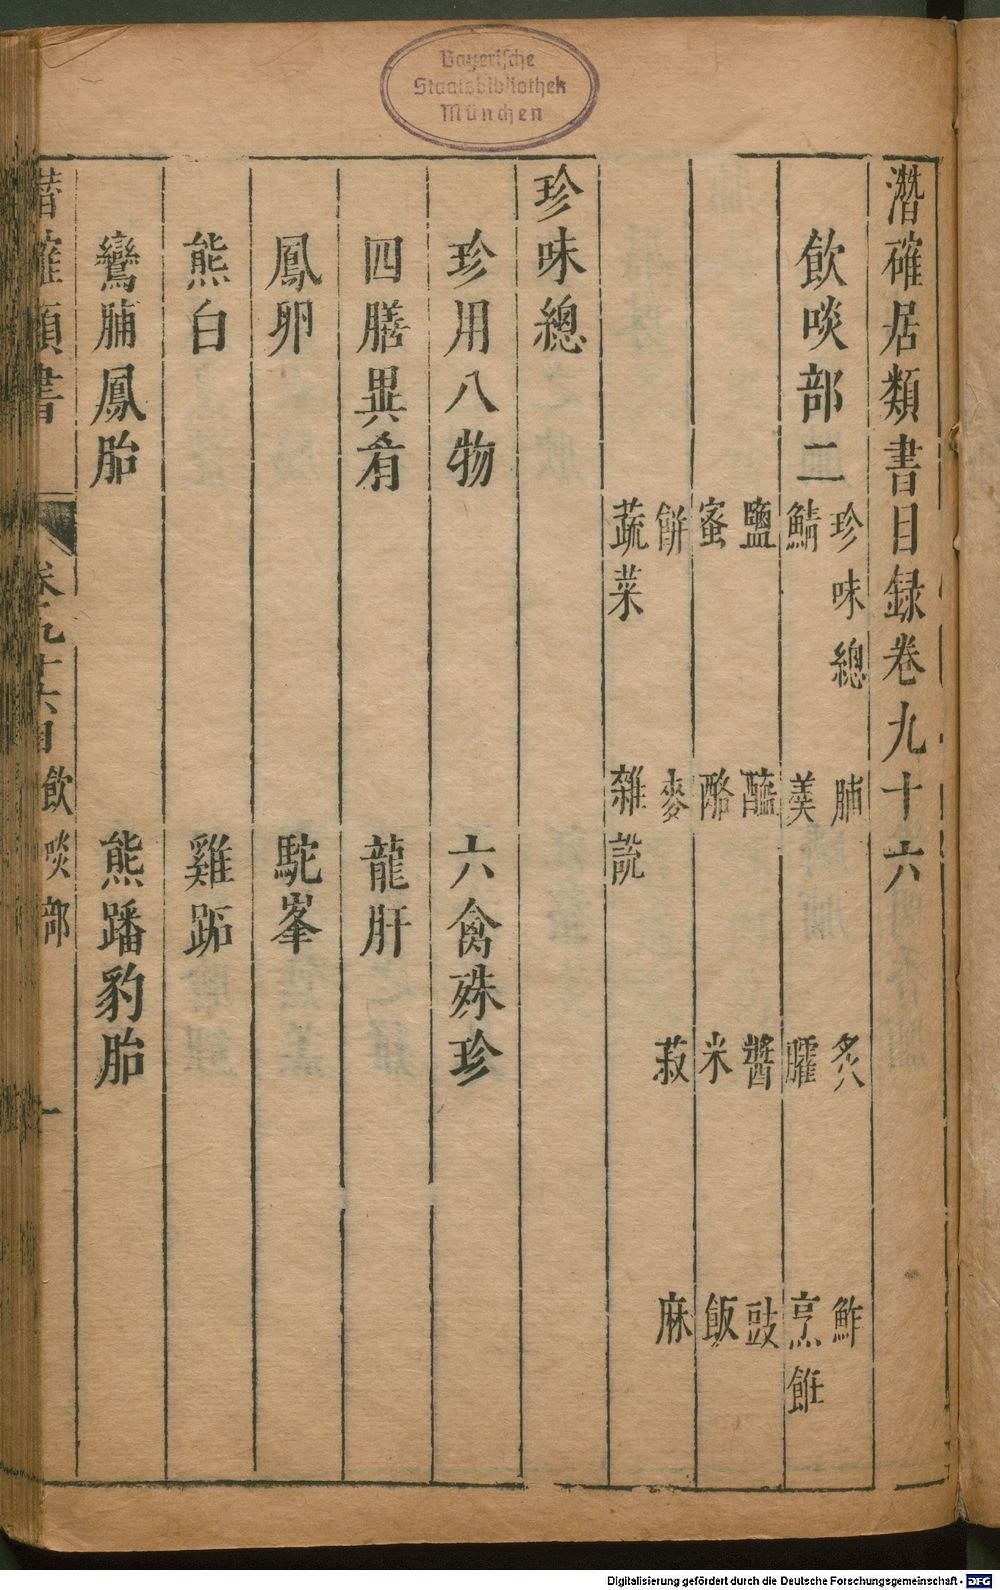 Bayerische
Staatsbibliothek
München
潛確居類書目録卷九十六
飲啖部二
珍味總 脯 炙 鮓
鯖 羹 臛 烹飪
鹽 醯 醬 豉
蜜 酪 米 飯
餅 麥 菽 麻
蔬菜 雜說
珍味總
珍用八物 六禽殊珍
四膳異肴 龍肝
鳳卵 駝峯
熊白 雞跖
鸞脯鳳胎 熊蹯豹胎
潛確類書 卷九十六目 飲啖部 一
Digitalisierung gefördert durch die Deutsche Forschungsgemeinschaft - DFG